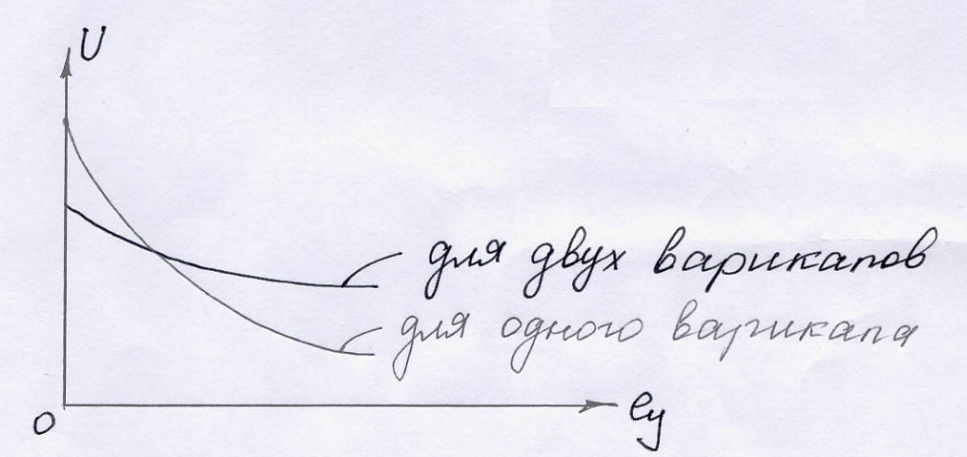 U
для двух варикапов
для одного варикапа
0
eу